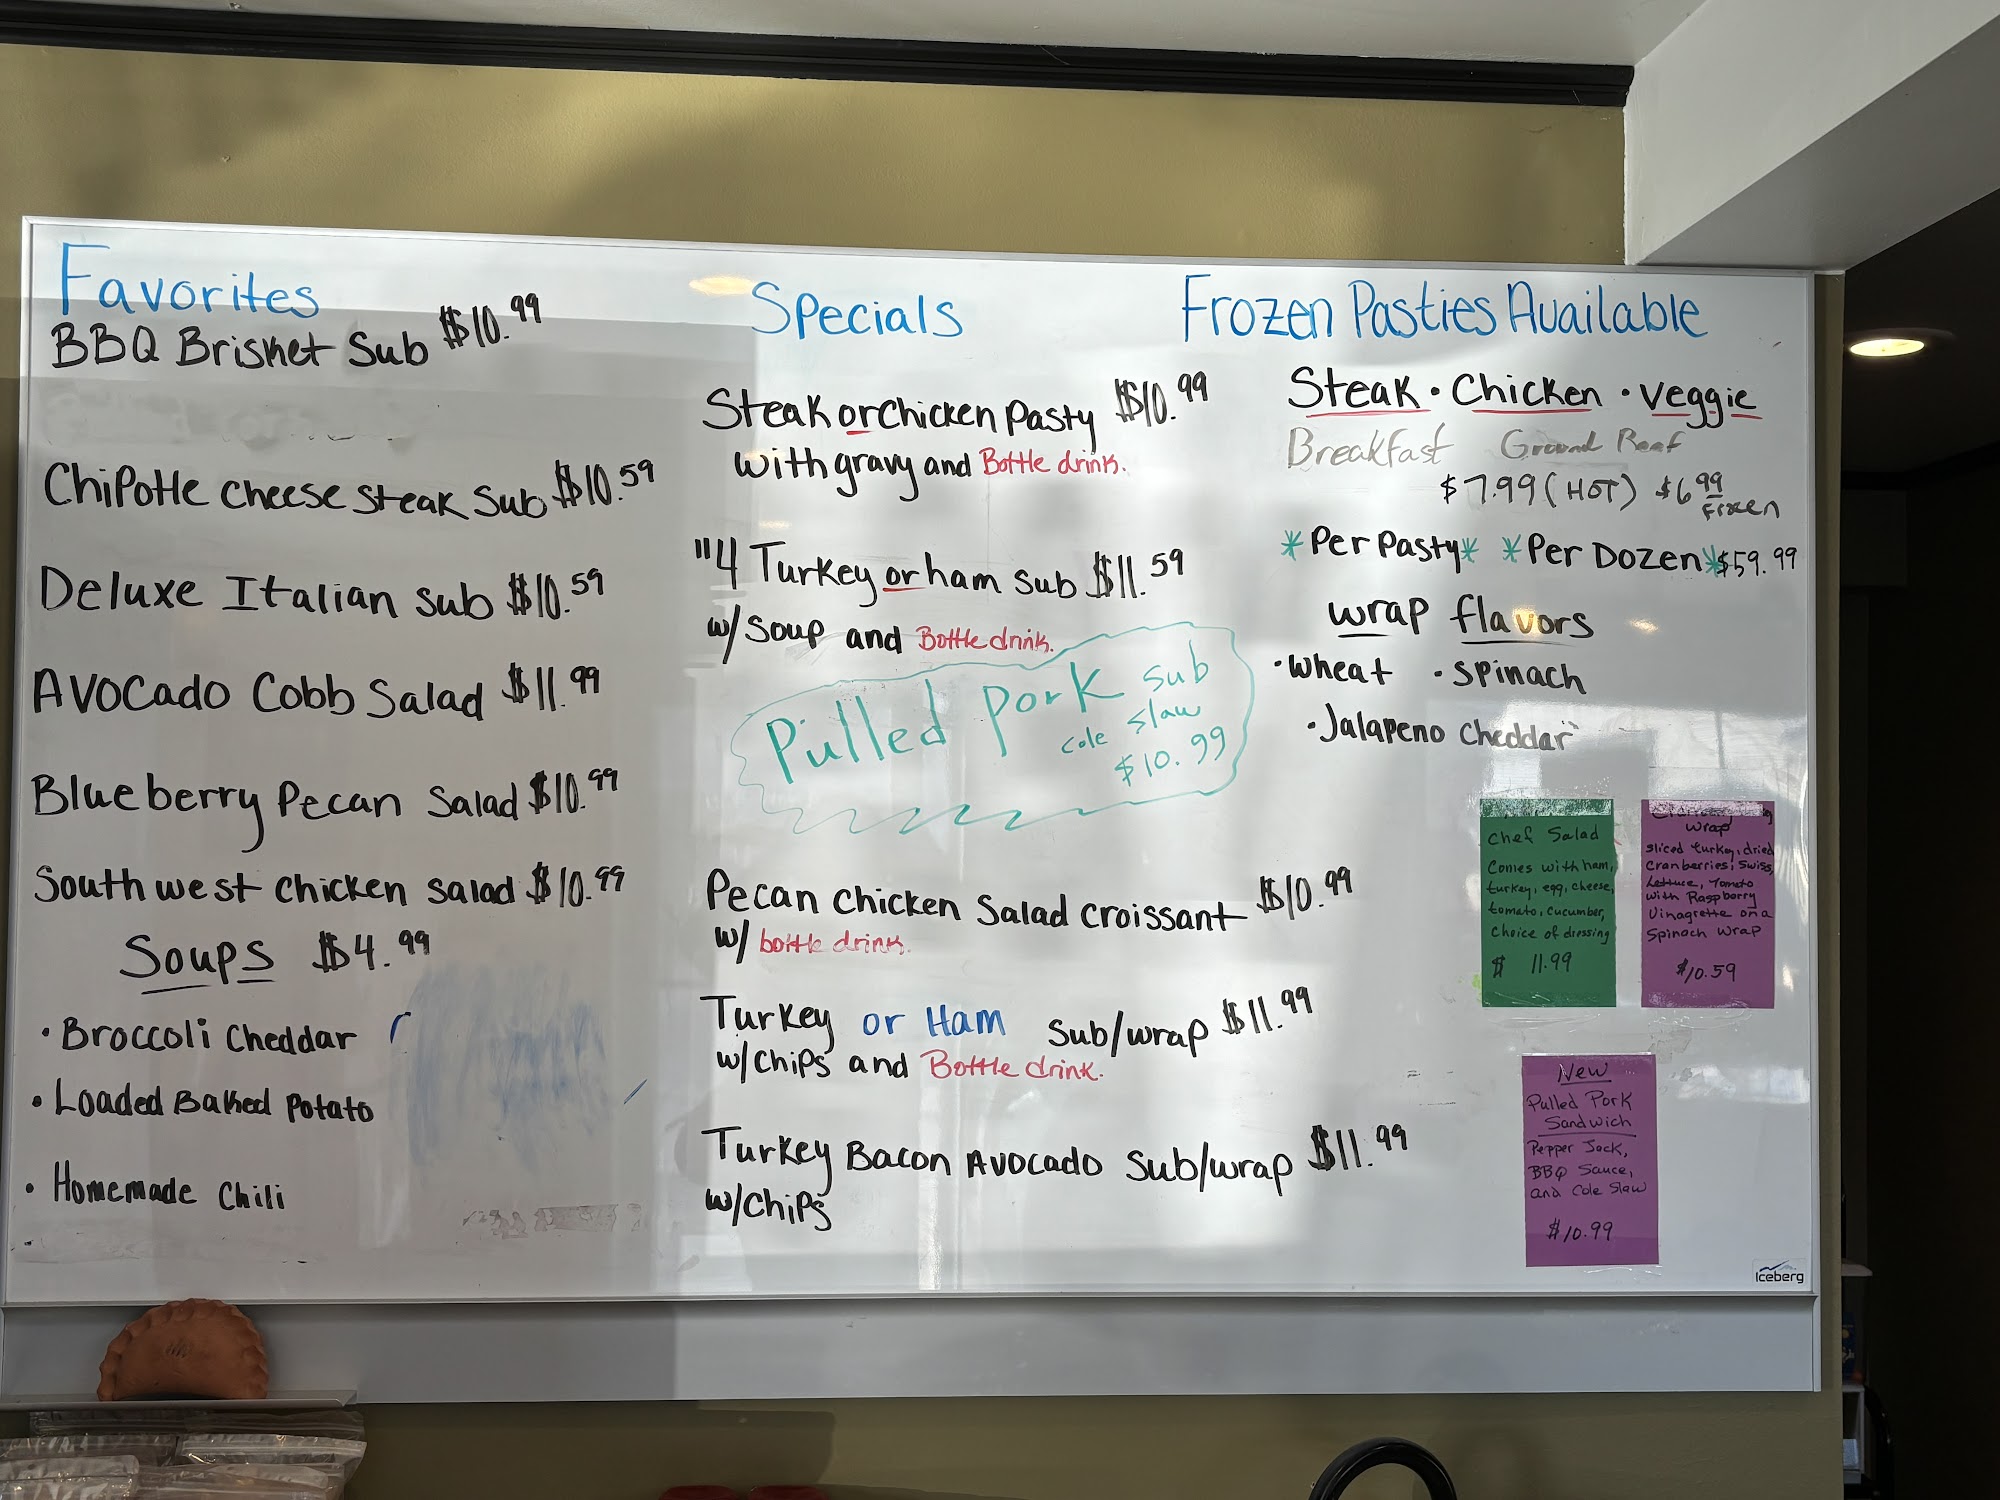 Favorites
BBQ Brisket Sub $10.99
Chipotle cheese steak Sub $10.59
Deluxe Italian sub $10.59
Avocado Cobb Salad $11.99
Blueberry Pecan Salad $10.99
Southwest chicken salad $10.99
Soups $4.99
• Broccoli Cheddar
• Loaded Baked Potato
• Homemade Chili
Specials
Steak or chicken Pasty $10.99
with gravy and Bottle drink.
"4 Turkey or ham sub $11.59
w/ soup and Bottle drink.
Pulled Pork sub
cole slaw
$10.99
Pecan chicken Salad croissant $10.99
w/ bottle drink.
Turkey or Ham sub/wrap $11.99
w/chips and Bottle drink.
Turkey Bacon Avocado sub/wrap $11.99
w/chips
Frozen Pasties Available
Steak • Chicken • Veggie
Breakfast Ground Beef
$7.99 (HOT) $6.99
Frozen
*Per Pasty* *Per Dozen* $59.99
wrap flavors
• wheat • spinach
• Jalapeno cheddar
Chef Salad
Comes with ham,
turkey, egg, cheese,
tomato, cucumber,
choice of dressing
$ 11.99
wrap
sliced turkey, dried
cranberries, swiss,
Lettuce, Tomato
with Raspberry
Vinagrette on a
Spinach wrap
$10.59
New
Pulled Pork
Sandwich
Pepper Jack,
BBQ Sauce,
and Cole Slaw
$10.99
Iceberg